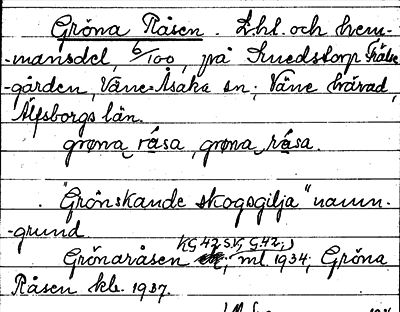 Gröna Råsen. Lhl. och hem-
-mansdel, 6/100, på Smedstorp Fräls-
-gården, Väne-Åsaka sn; Väne härad,
Älfsborgs län.
grøna råsa, grøna råsa.
"Grönskande skogsgilja" namn-
-grund.
KG 42, SV, G 42,
Grönaråsen ml 1934; Gröna
Råsen kb. 1937.